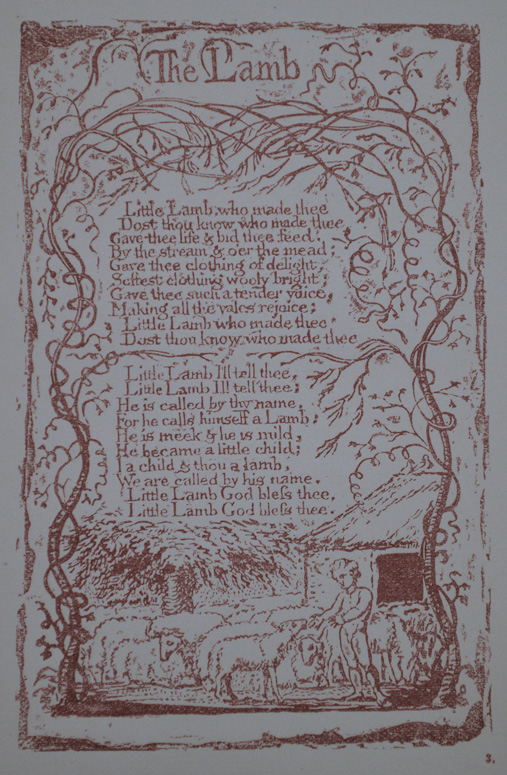 The Lamb
Little Lamb who made thee
Dost thou know who made thee
Gave thee life & bid thee feed.
By the stream & o'er the mead;
Gave thee clothing of delight,
Softest clothing wooly bright;
Gave thee such a tender voice,
Making all the vales rejoice;
Little Lamb who made thee
Dost thou know who made thee
Little Lamb I'll tell thee,
Little Lamb I'll tell thee;
He is called by thy name,
For he calls himself a Lamb:
He is meek & he is mild,
He became a little child;
I a child & thou a lamb,
We are called by his name.
Little Lamb God bleſs thee,
Little Lamb God bleſs thee.
3.